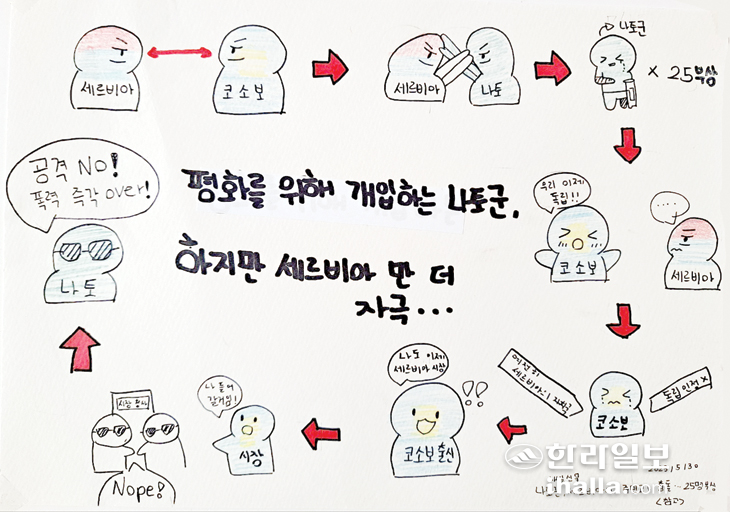 세르비아
코소보
세르비아
나토
나토군
× 25부상
공격 NO!
폭력 즉각 over!
나토
평화를 위해 개입하는 나토군,
하지만 세르비아 만 더
자극...
우리 이제
독립!!
코소보
.....
세르비아
여전히
세르비아의 자치주
코소보
독립 인정 X
나도 이제
세르비아 시장
!!
코소보 출신
나 들어
갈거임!
시장
시장 청사
Nope!
한라일보
ihalla.com
5/30
25명 부상
<참고>